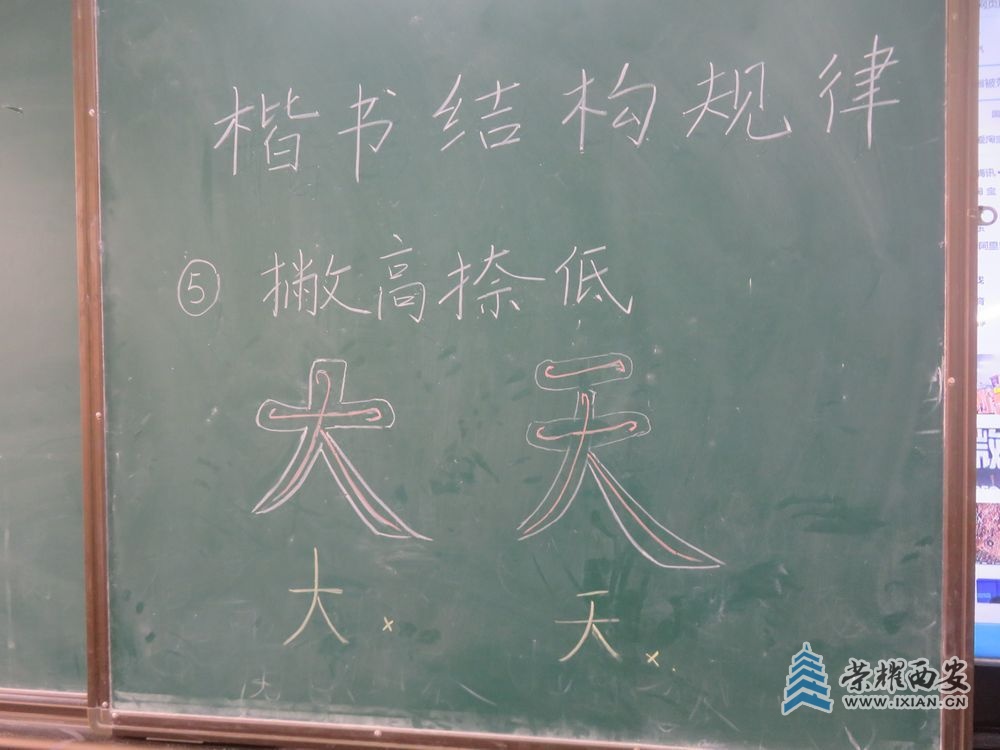 楷书结构规律
⑤ 撇高捺低
大 天
大 × 天 ×
荣耀西安
WWW.IXIAN.CN